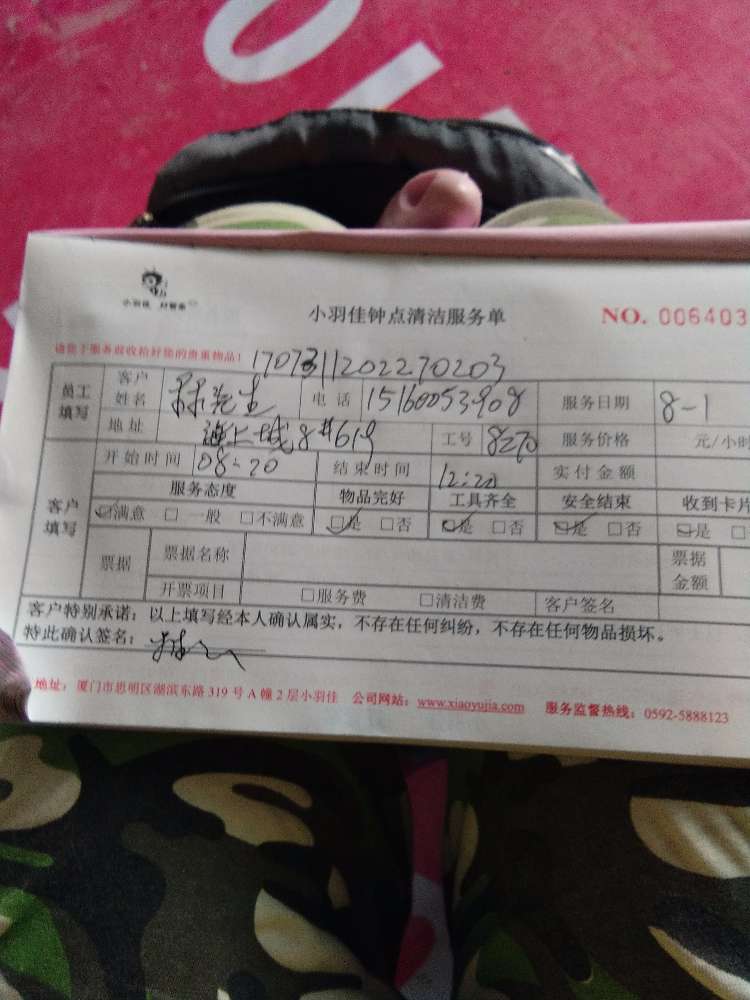 小羽佳 好管家
小羽佳钟点清洁服务单 NO. 006403
请您于服务前收拾好您的贵重物品! 1707311202270203
员工填写 客户姓名 林先生 电话 15160053908 服务日期 8-1
地址 海上城8#619 工号 8270 服务价格 元/小时
开始时间 08:20 结束时间 12:20 实付金额
客户填写 服务态度 物品完好 工具齐全 安全结束 收到卡片
☑满意 □一般 □不满意 ☑是 □否 ☑是 □否 ☑是 □否 ☑是 □
票据 票据名称 票据金额
开票项目 □服务费 □清洁费 客户签名
客户特别承诺:以上填写经本人确认属实,不存在任何纠纷,不存在任何物品损坏。
特此确认签名:
地址:厦门市思明区湖滨东路319号A幢2层小羽佳 公司网站:www.xiaoyujia.com 服务监督热线:0592-5888123